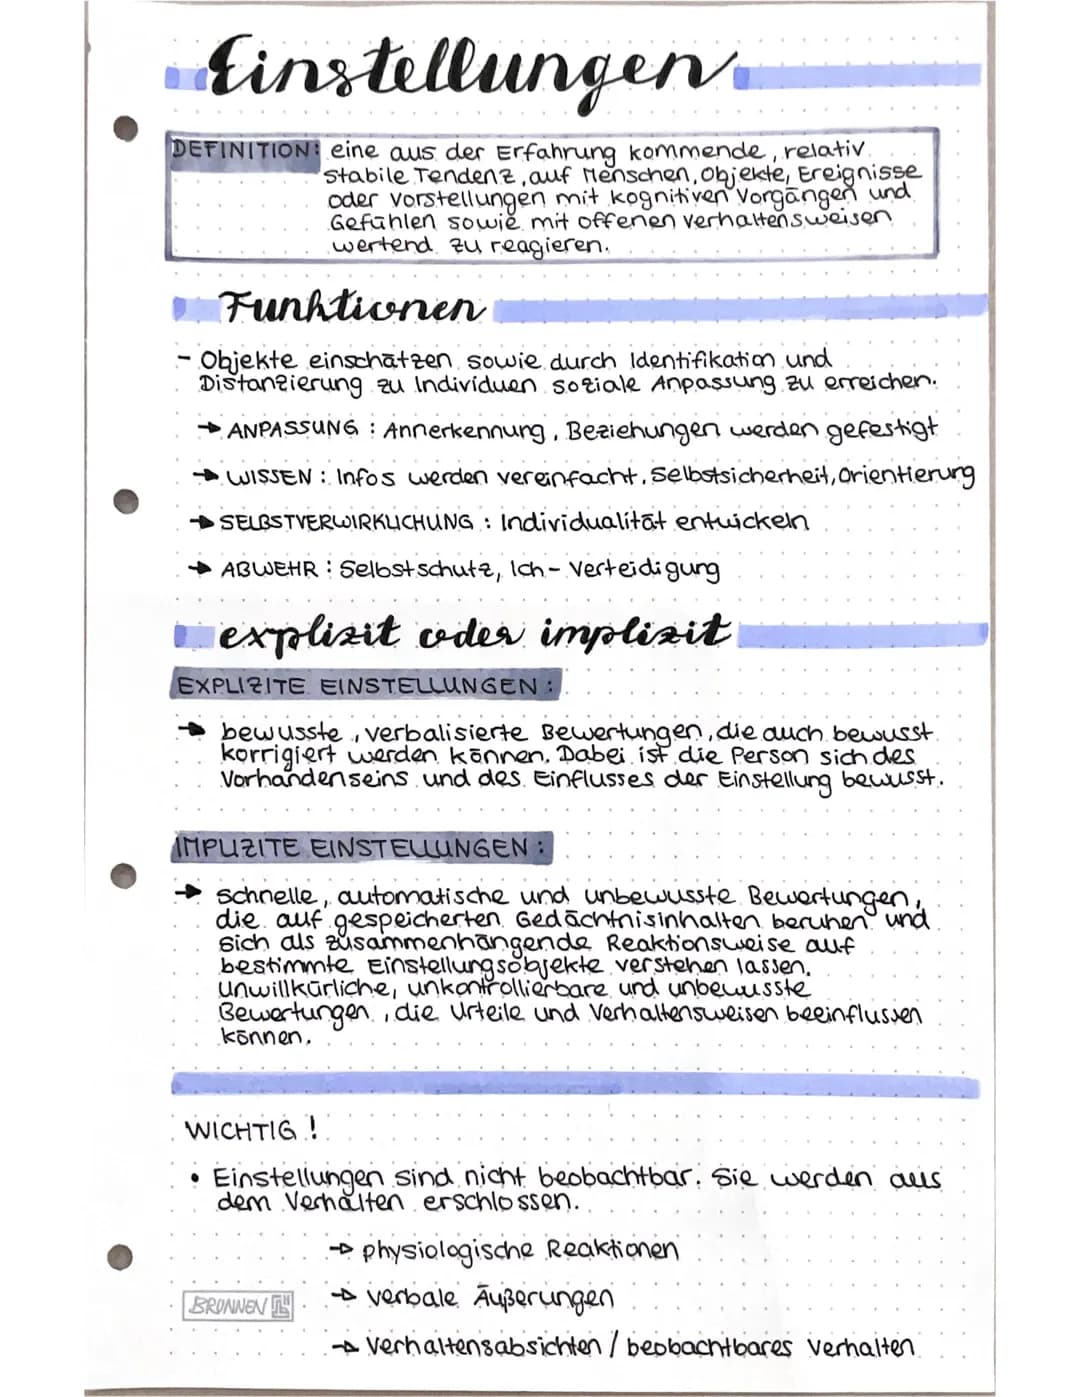 Einstellungen
DEFINITION: eine aus der Erfahrung kommende, relativ
stabile Tendenz, auf Menschen, Objekte, Ereignisse
oder Vorstellungen mit kognitiven Vorgängen und
Gefühlen sowie mit offenen Verhaltensweisen
wertend zu reagieren.
Funktionen
- Objekte einschätzen sowie durch Identifikation und
Distanzierung zu Individuen soziale Anpassung zu erreichen.
→ ANPASSUNG : Annerkennung, Beziehungen werden gefestigt
→ WISSEN : Infos werden vereinfacht, Selbstsicherheit, Orientierung
→ SELBSTVERWIRKLICHUNG : Individualität entwickeln
→ ABWEHR : Selbstschutz, Ich - Verteidigung
explizit oder implizit
EXPLIZITE EINSTELLUNGEN :
→ bewusste, verbalisierte Bewertungen, die auch bewusst
korrigiert werden können. Dabei ist die Person sich des
Vorhandenseins und des Einflusses der Einstellung bewusst.
IMPLIZITE EINSTELLUNGEN :
→ schnelle, automatische und unbewusste Bewertungen,
die auf gespeicherten Gedächtnisinhalten beruhen und
sich als zusammenhängende Reaktionsweise auf
bestimmte Einstellungsobjekte verstehen lassen.
Unwillkürliche, unkontrollierbare und unbewusste
Bewertungen, die Urteile und Verhaltensweisen beeinflussen
können.
WICHTIG !
• Einstellungen sind nicht beobachtbar. Sie werden aus
dem Verhalten erschlossen.
→ physiologische Reaktionen
→ verbale Äußerungen
→ Verhaltensabsichten / beobachtbares Verhalten
BRUNNEN